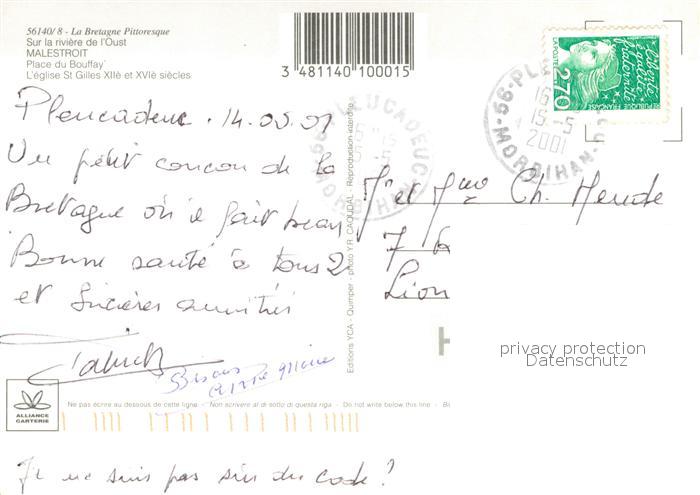 56140/8 - La Bretagne Pittoresque
Sur la rivière de l'Oust
MALESTROIT
Place du Bouffay
L'église St Gilles XIIè et XVIè siècles
3 481140 100015
Pleucadeuc . 14.05.01
Un petit coucou de la
Bretagne où il fait beau
Bonne santé à tous 2
et sincères amitiés
Bisous
Je ne suis pas sûr du code ?
Editions YCA - Quimper - photo Y.R. CAOUDAL - Reproduction interdite
Mr et Mme Ch.
7
Lion
LA POSTE
2,70
Liberté égalité fraternité
REPUBLIQUE FRANÇAISE
56-PLEUCADEUC
16
15-5
2001
MORBIHAN
privacy protection
Datenschutz
ALLIANCE
CARTERIE
Ne pas écrire au dessous de cette ligne - Non scrivere al di sotto di questa riga - Do not write below this line -